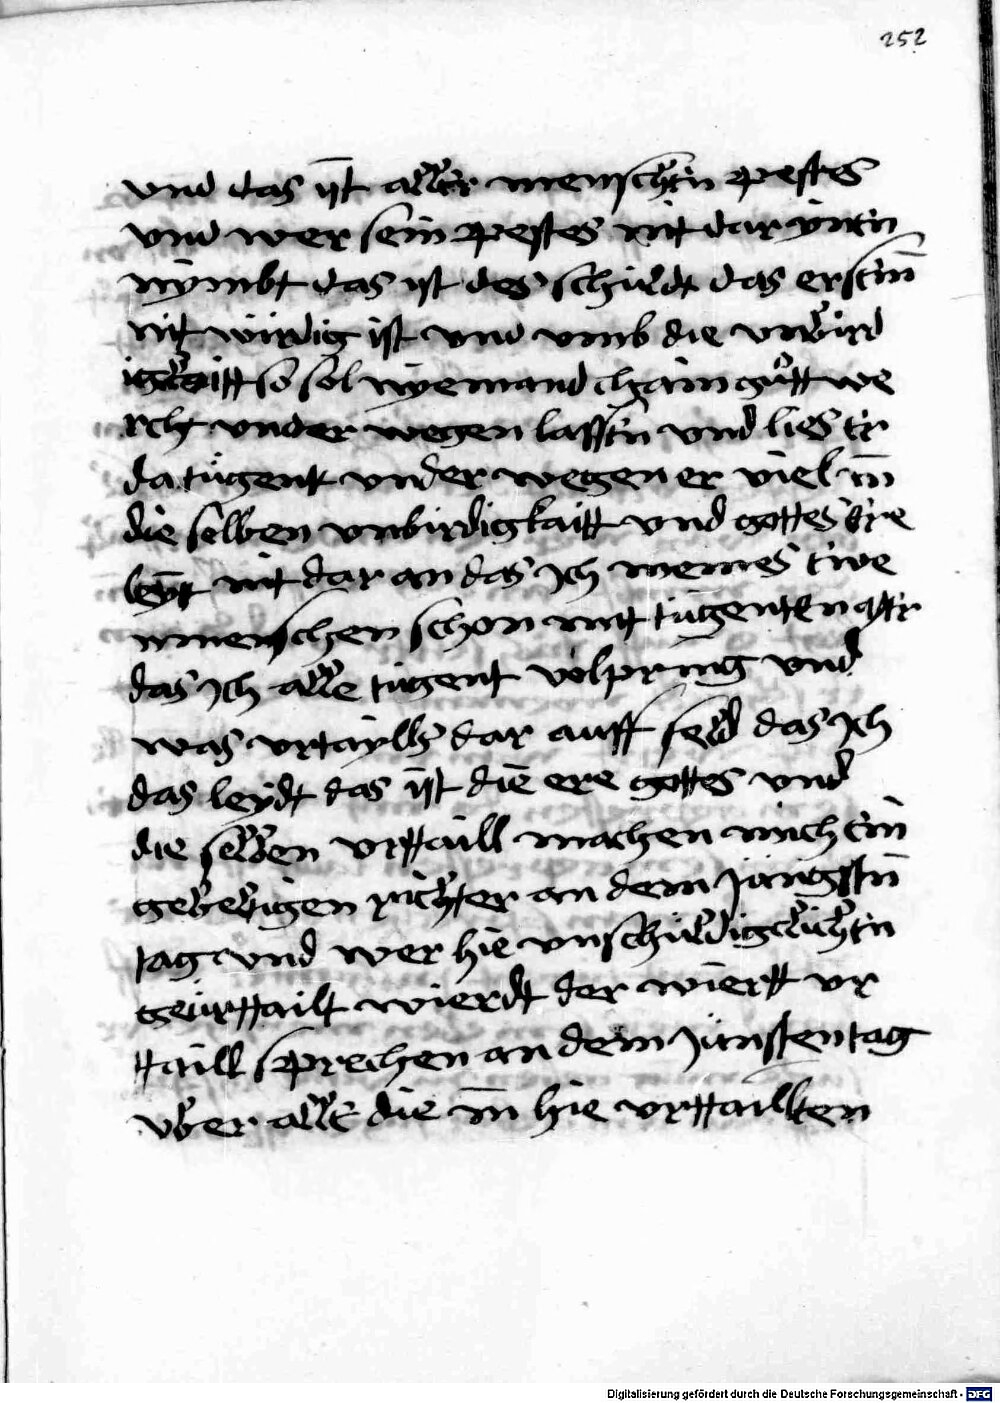 252
vnd das ist aller menschen pestes
vnd wer sein pestes nit dar ynen
nymbt das ist des schuldt das er sein
nit wirdig ist vnd vmb die vnwird
so sol nyemand chain gutt we
rch vnder wegen lassen vnd lies er
da tugent vnder wegen er viel in
die selben vnbirdigkaitt vnd gottes ere
leyt nit dar an das ich meines
menschen schon mit tugenten
das ich alle tugent volpring vnd
was vrtaylls dar auff seid das ich
das leydt das ist die ere gottes vnd
die selben vrttaill machen mich ein
richter an dem jungsten
tag vnd wer hie vnschuldigclichen
geurttailt wierdt der wiertt vr
ttaill sprechen an dem junsten tag
vber alle die in hie vrttailten
Digitalisierung gefördert durch die Deutsche Forschungsgemeinschaft - DFG